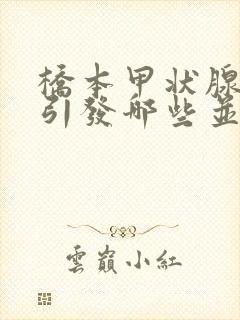 橋本甲状腺
引發哪些並
雲巔小紅